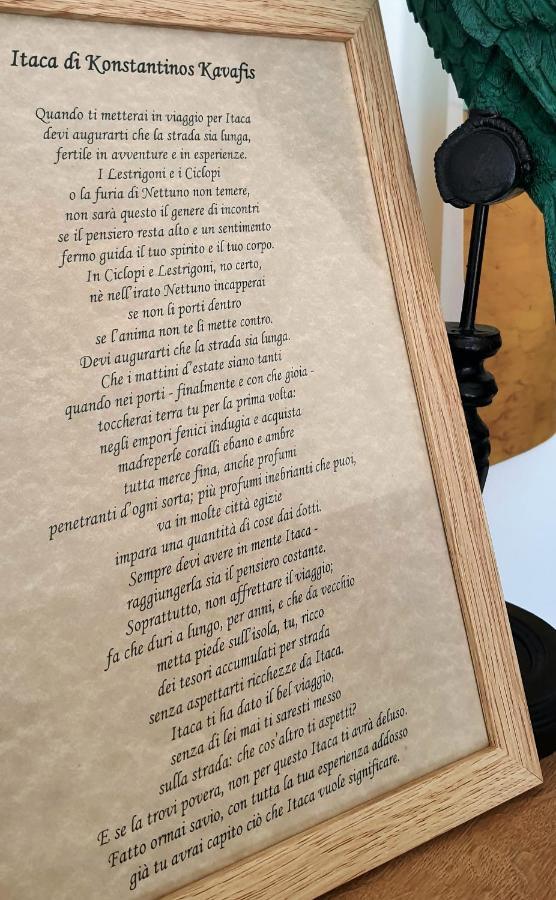 Itaca di Konstantinos Kavafis
Quando ti metterai in viaggio per Itaca
devi augurarti che la strada sia lunga,
fertile in avventure e in esperienze.
I Lestrigoni e i Ciclopi
o la furia di Nettuno non temere,
non sarà questo il genere di incontri
se il pensiero resta alto e un sentimento
fermo guida il tuo spirito e il tuo corpo.
In Ciclopi e Lestrigoni, no certo,
nè nell'irato Nettuno incapperai
se non li porti dentro
se l'anima non te li mette contro.
Devi augurarti che la strada sia lunga.
Che i mattini d'estate siano tanti
quando nei porti - finalmente e con che gioia -
toccherai terra tu per la prima volta:
negli empori fenici indugia e acquista
madreperle coralli ebano e ambre
tutta merce fina, anche profumi
penetranti d'ogni sorta; più profumi inebrianti che puoi,
va in molte città egizie
impara una quantità di cose dai dotti.
Sempre devi avere in mente Itaca -
raggiungerla sia il pensiero costante.
Soprattutto, non affrettare il viaggio;
fa che duri a lungo, per anni, e che da vecchio
metta piede sull'isola, tu, ricco
dei tesori accumulati per strada
senza aspettarti ricchezze da Itaca.
Itaca ti ha dato il bel viaggio,
senza di lei mai ti saresti messo
sulla strada: che cos'altro ti aspetti?
E se la trovi povera, non per questo Itaca ti avrà deluso.
Fatto ormai savio, con tutta la tua esperienza addosso
già tu avrai capito ciò che Itaca vuole significare.